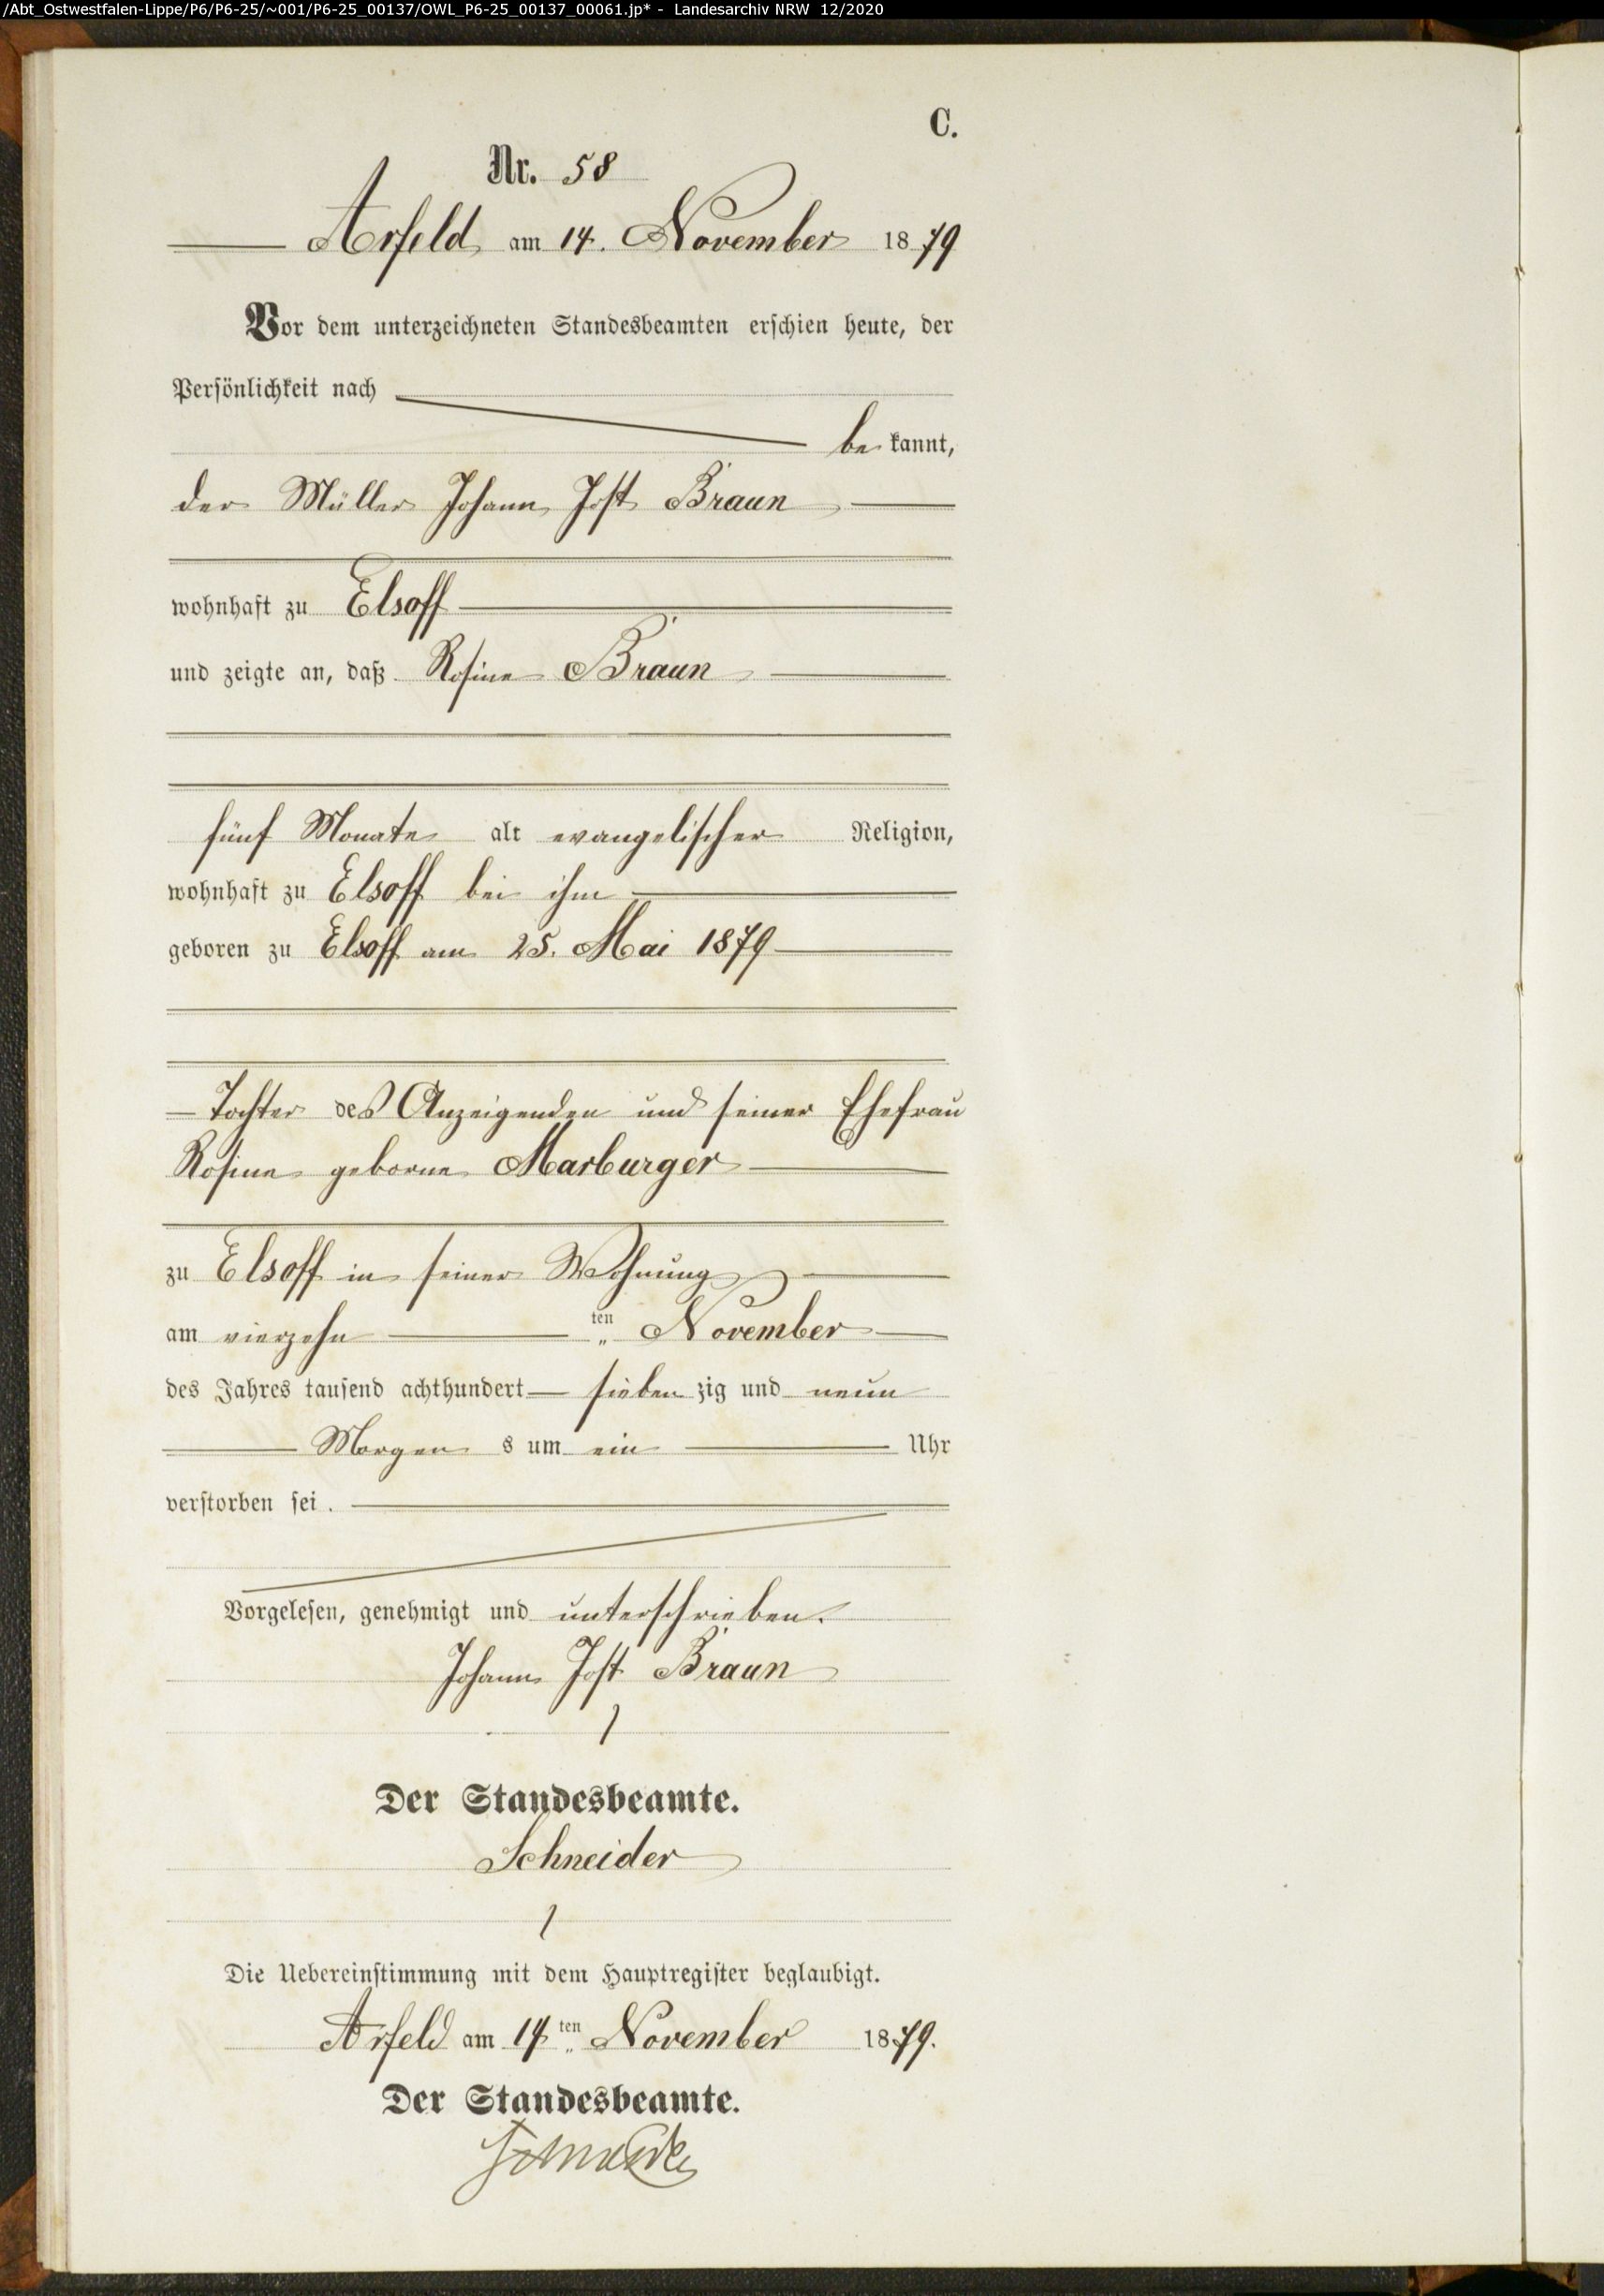 /Abt_Ostwestfalen-Lippe/P6/P6-25/~001/P6-25_00137/OWL_P6-25_00137_00061.jp* - Landesarchiv NRW 12/2020
C.
Nr. 58
Arfeld am 14. November 1879
Vor dem unterzeichneten Standesbeamten erschien heute, der
Persönlichkeit nach
bekannt,
der Müller Johann Jost Braun
wohnhaft zu Elsoff
und zeigte an, daß Rosine Braun
fünf Monate alt evangelischer Religion,
wohnhaft zu Elsoff bei ihm
geboren zu Elsoff am 25. Mai 1879
Tochter des Anzeigenden und seiner Ehefrau
Rosine geborne Marburger
zu Elsoff in seiner Wohnung
am vierzehn ten November
des Jahres tausend achthundert siebenzig und neun
Morgens um ein Uhr
verstorben sei.
Vorgelesen, genehmigt und unterschrieben.
Johann Jost Braun
Der Standesbeamte.
Schneider
Die Uebereinstimmung mit dem Hauptregister beglaubigt.
Arfeld am 14ten November 1879.
Der Standesbeamte.
Schneider